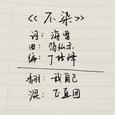 《不染》
词:海雷
曲:简弘亦
编:丁培峰
翻:我自己
混:飞鱼团